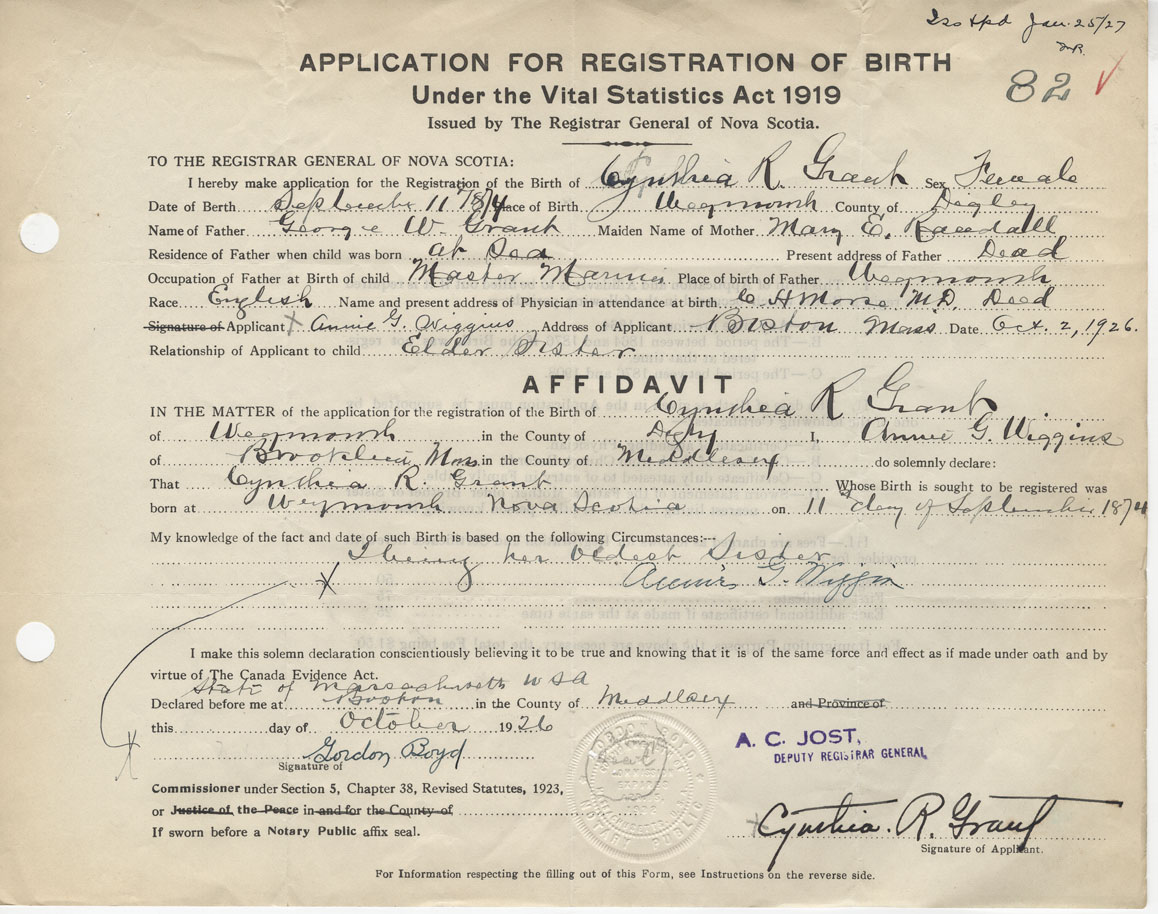 Jan. 25/27
82
APPLICATION FOR REGISTRATION OF BIRTH
Under the Vital Statistics Act 1919
Issued by The Registrar General of Nova Scotia.
TO THE REGISTRAR GENERAL OF NOVA SCOTIA:
I hereby make application for the Registration of the Birth of Cynthia R. Grant Sex Female
Date of Berth September 11 1874 Place of Birth Weymouth County of Digby
Name of Father George W. Grant Maiden Name of Mother Mary E. Randall
Residence of Father when child was born at Sea Present address of Father Dead
Occupation of Father at Birth of child Master Mariner Place of birth of Father Weymouth
Race English Name and present address of Physician in attendance at birth C. H Morse M.D. Dead
Signature of Applicant X Annie G. Wiggins Address of Applicant Boston Mass. Date Oct. 2, 1926.
Relationship of Applicant to child Elder Sister
AFFIDAVIT
IN THE MATTER of the application for the registration of the Birth of Cynthia R Grant
of Weymouth in the County of Digby I, Annie G. Wiggins
of Brookline Mass. in the County of Middlesex do solemnly declare:
That Cynthia R. Grant Whose Birth is sought to be registered was
born at Weymouth Nova Scotia on 11 day of September 1874
My knowledge of the fact and date of such Birth is based on the following Circumstances:--
I being her Oldest Sister
X Annie G. Wiggin
I make this solemn declaration conscientiously believing it to be true and knowing that it is of the same force and effect as if made under oath and by
virtue of The Canada Evidence Act.
State of Massachusetts USA
Declared before me at Boston in the County of Middlesex and Province of
this day of October 1926
A. C. JOST,
DEPUTY REGISTRAR GENERAL
X Gordon Boyd
Signature of
Commissioner under Section 5, Chapter 38, Revised Statutes, 1923,
or Justice of the Peace in and for the County of
If sworn before a Notary Public affix seal.
NOTARY PUBLIC
X Cynthia. R. Grant
Signature of Applicant.
For Information respecting the filling out of this Form, see Instructions on the reverse side.